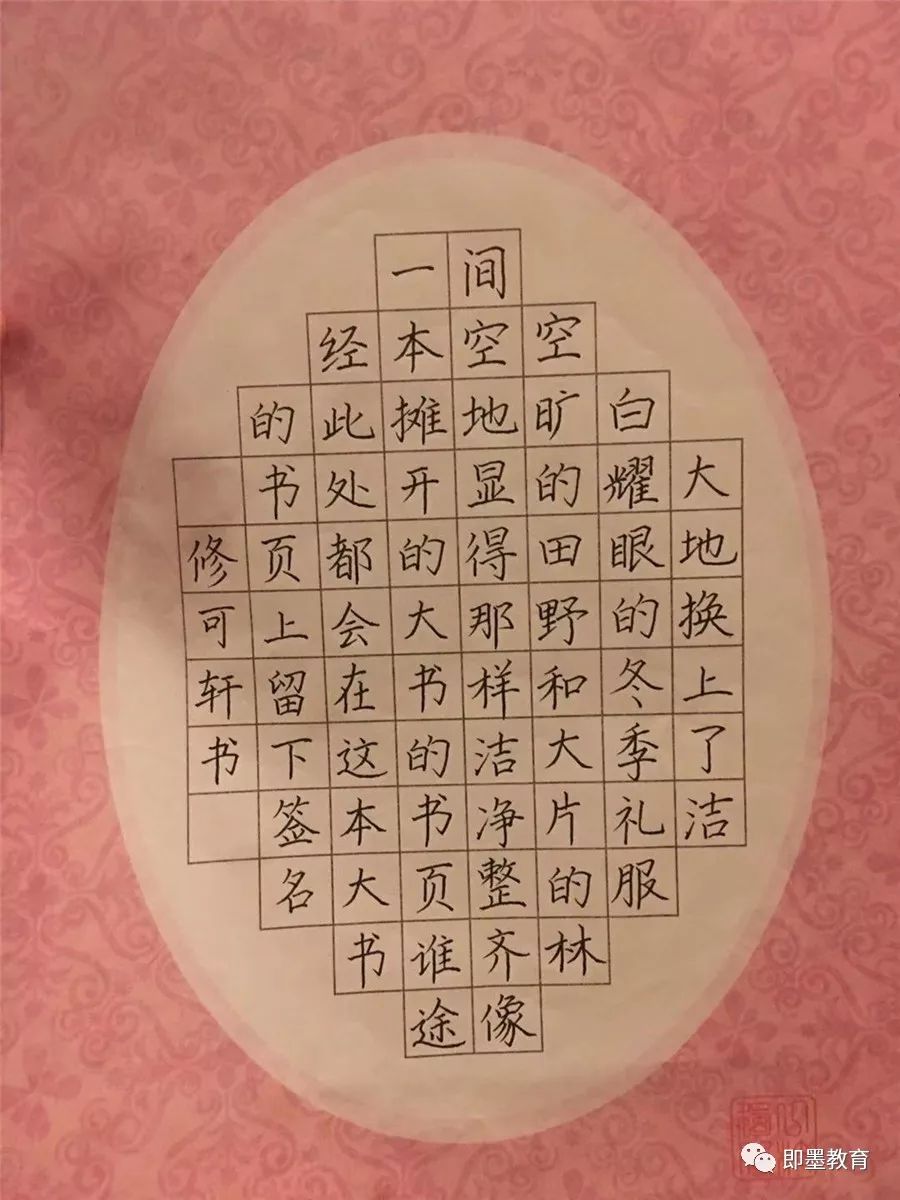 大地换上了洁
白耀眼的冬季礼服
空旷的田野和大片的林
间空地显得那样洁净整齐像
一本摊开的大书的书页谁途
经此处都会在这本大书
的书页上留下签名
修可轩书
即墨教育